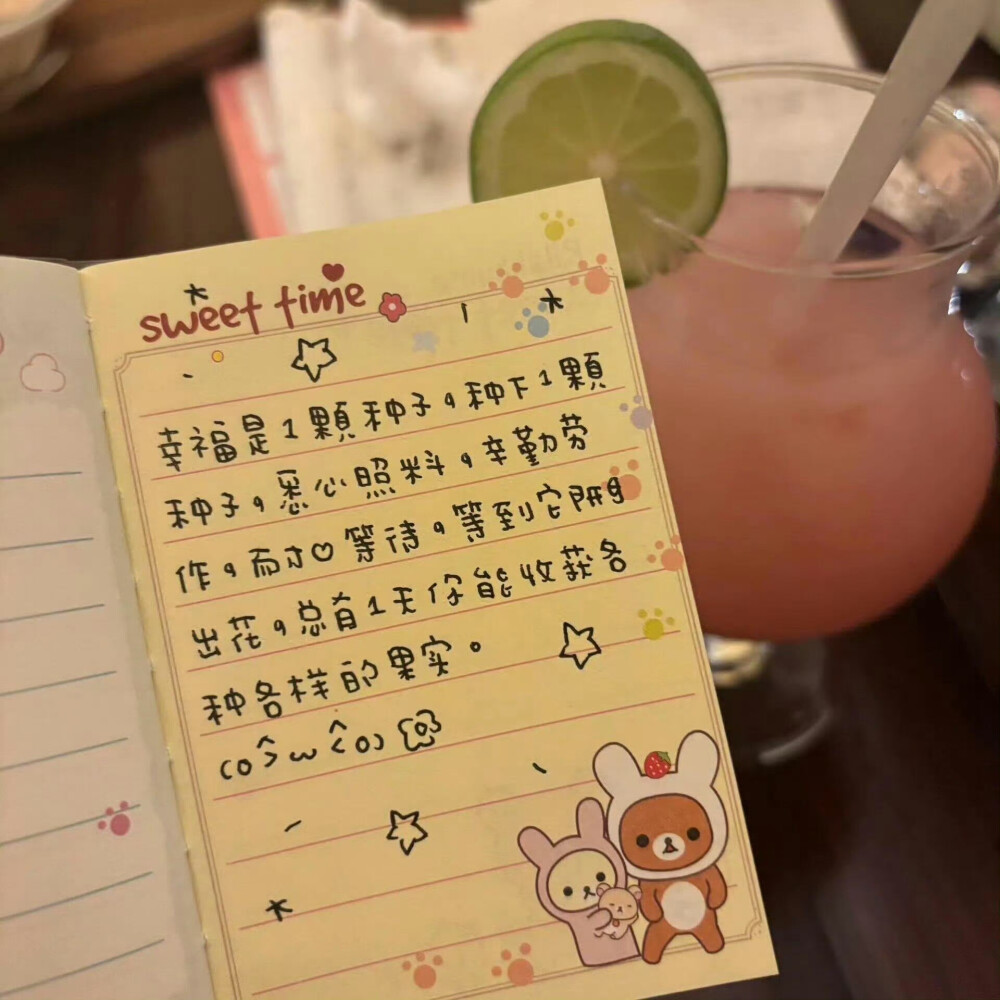 sweet time
幸福是1颗种子，种下1颗
种子，悉心照料，辛勤劳
作，而讨♡等待，等到它開
出花，总有1天你能收获各
种各样的果实。
(o>ω<o)